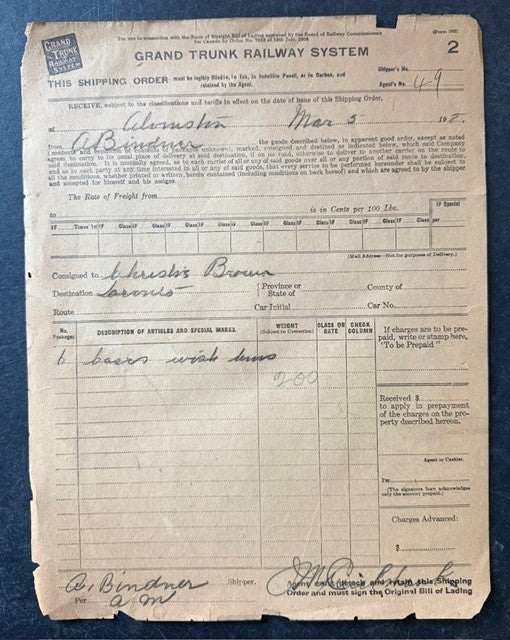 GRAND TRUNK RAILWAY SYSTEM
For use in connection with the Form of Straight Bill of Lading approved by the Board of Railway Commissioners
for Canada by Order No. 7562 of 15th July, 1909
(Form 507)
2
GRAND TRUNK RAILWAY SYSTEM
Shipper's No.
THIS SHIPPING ORDER must be legibly filled in, in Ink, in Indelible Pencil, or in Carbon, and
retained by the Agent.
Agent's No. 49
RECEIVE, subject to the classifications and tariffs in effect on the date of issue of this Shipping Order,
at Alvinston Mar 5 1918.
from A Bindner the goods described below, in apparent good order, except as noted
(contents and condition of contents of packages unknown), marked, consigned and destined as indicated below, which said Company
agrees to carry to its usual place of delivery at said destination, if on its road, otherwise to deliver to another carrier on the route to
said destination. It is mutually agreed, as to each carrier of all or any of said goods over all or any portion of said route to destination,
and as to each party at any time interested in all or any of said goods, that every service to be performed hereunder shall be subject to
all the conditions, whether printed or written, herein contained (including conditions on back hereof) and which are agreed to by the shipper
and accepted for himself and his assigns.
The Rate of Freight from
to is in Cents per 100 Lbs.
IF Special
IF Times 1st IF Class IF Class IF Class IF Class IF Class IF Class IF Class IF Class per
(Mail Address—Not for purposes of Delivery.)
Consigned to Brown
Destination Province or
State of County of
Route Car Initial Car No.
No.
Packages DESCRIPTION OF ARTICLES AND SPECIAL MARKS. WEIGHT
(Subject to Correction) CLASS OR
RATE CHECK
COLUMN
If charges are to be pre-
paid, write or stamp here,
"To be Prepaid"
6
200
Received $
to apply in prepayment
of the charges on the pro-
perty described hereon.
Agent or Cashier.
Per
(The signature here acknowledges
only the amount prepaid.)
Charges Advanced:
$
A, Bindner Shipper.
Per A M
Agent must detach and retain this Shipping
Order and must sign the Original Bill of Lading